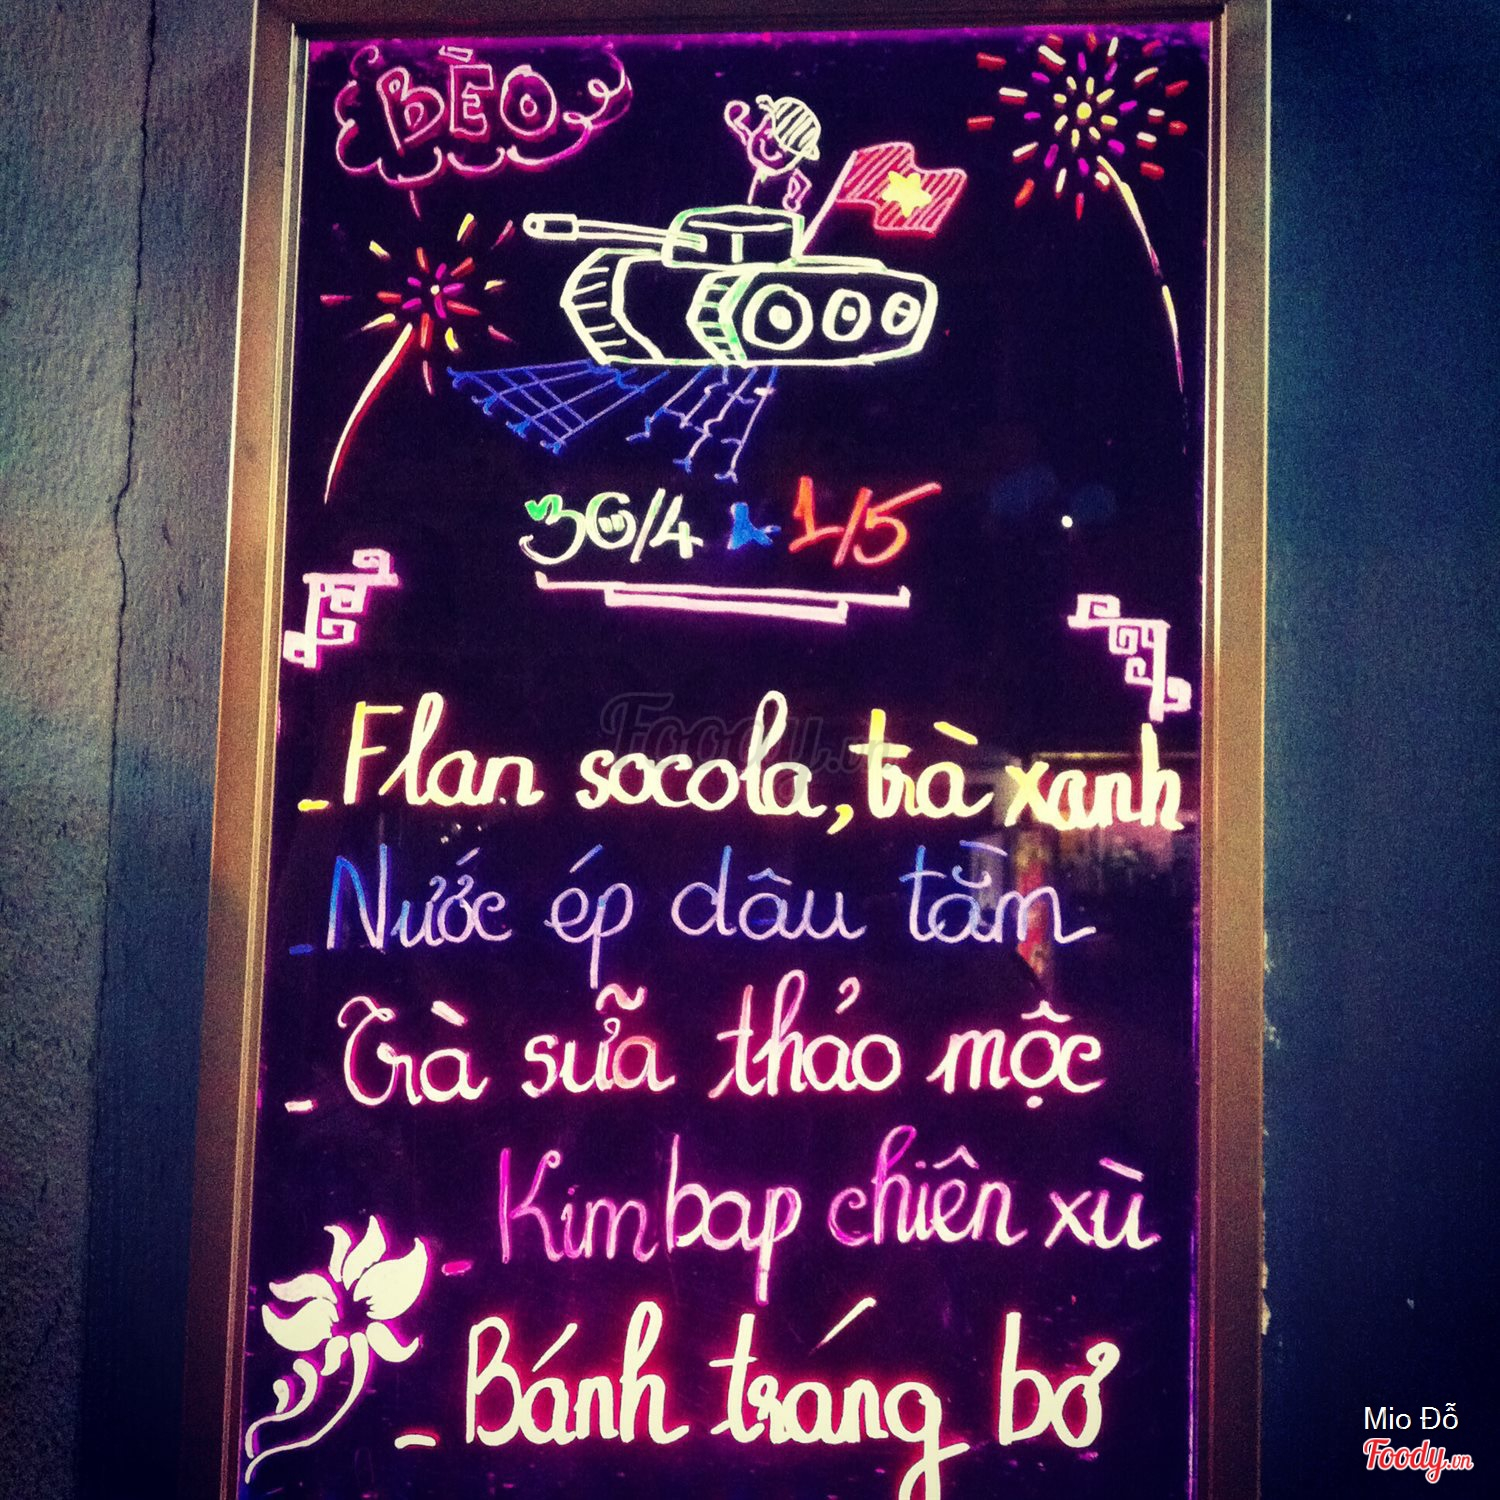 BÈO
30/4 1/5
- Flan socola, trà xanh
- Nước ép dâu tằm
- Trà sữa thảo mộc
- Kimbap chiên xù
- Bánh tráng bơ
Foody.vn
Mio Đỗ
Foody.vn